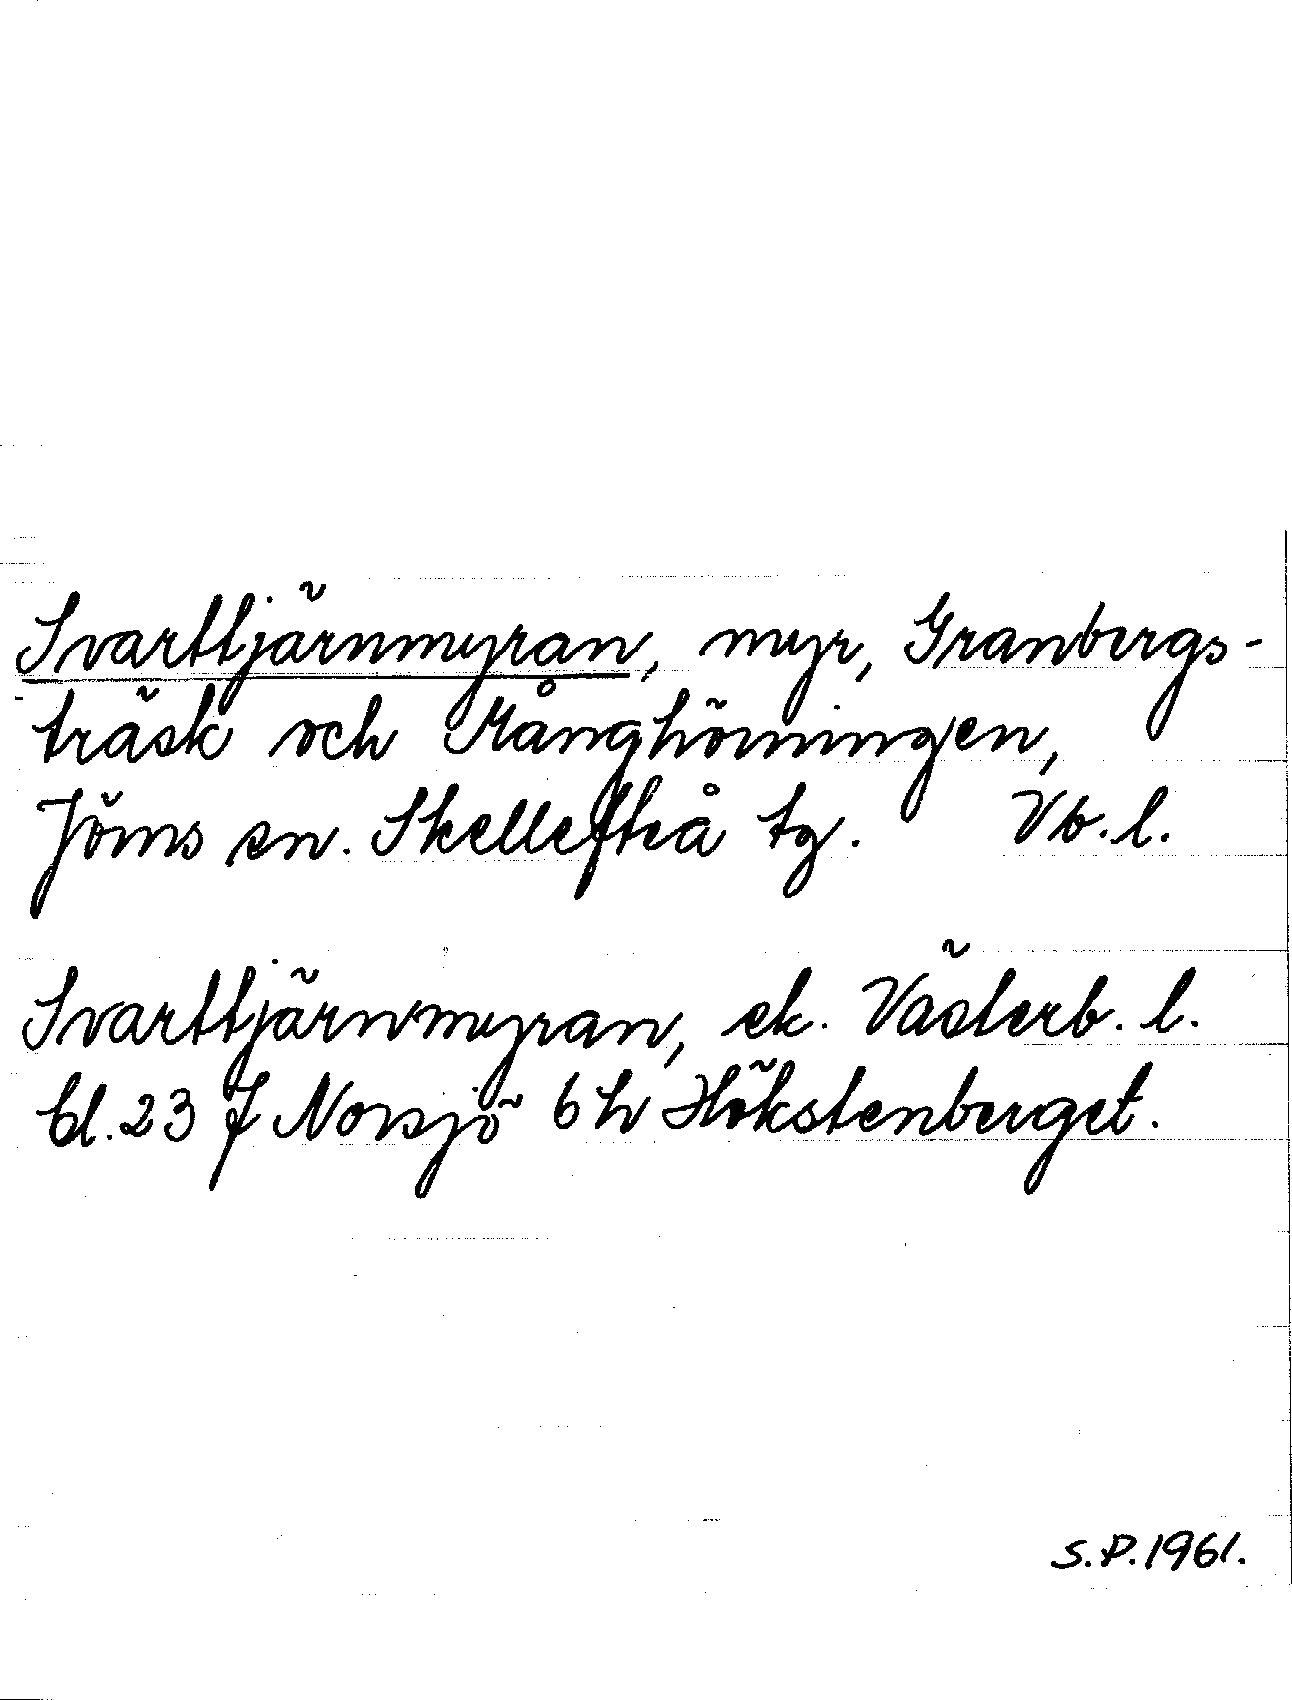 Svarttjärnmyran, myr, Granbergs-
träsk och Månghörningen,
Jörns sn. Skellefteå tg. Vb. l.
Svarttjärnmyran, ek. Västerb. l.
bl. 23 J Norsjö 6 h Hökstenberget.
S.P. 1961.